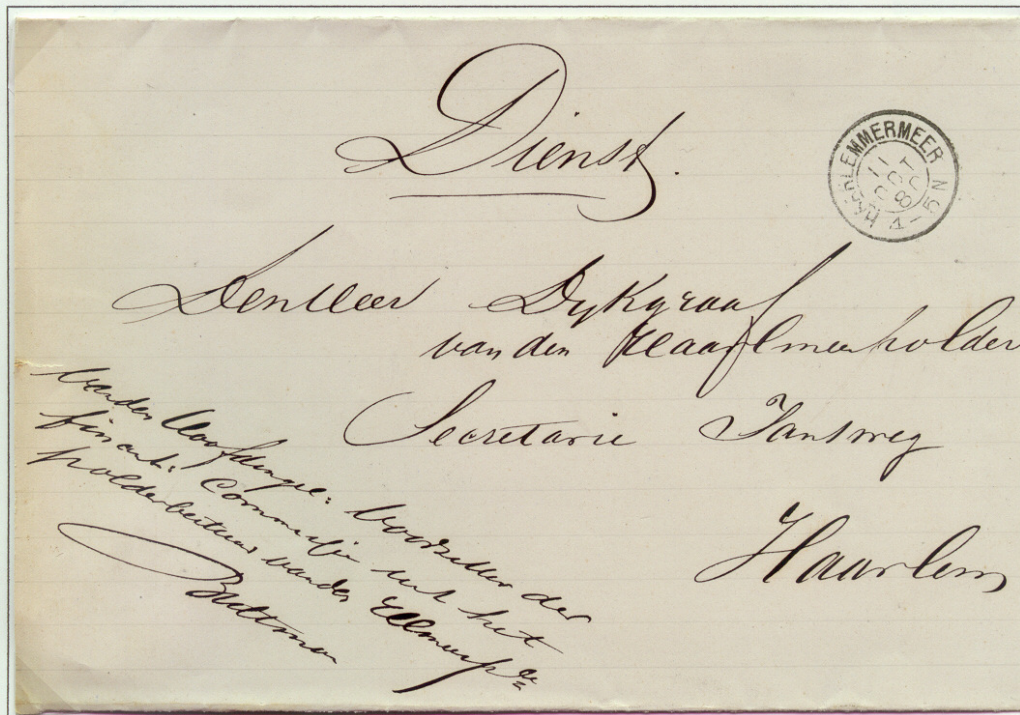 Dienst.
HAARLEMMERMEER
11
OCT
80
4-5N
Den Heer Dykgraaf
van den Haarlmeerpolder
Secretarie Jansweg
Haarlem
van den Hoofdingel: Voorzitter der
finant: Commissie uit het
polderbestuur van den